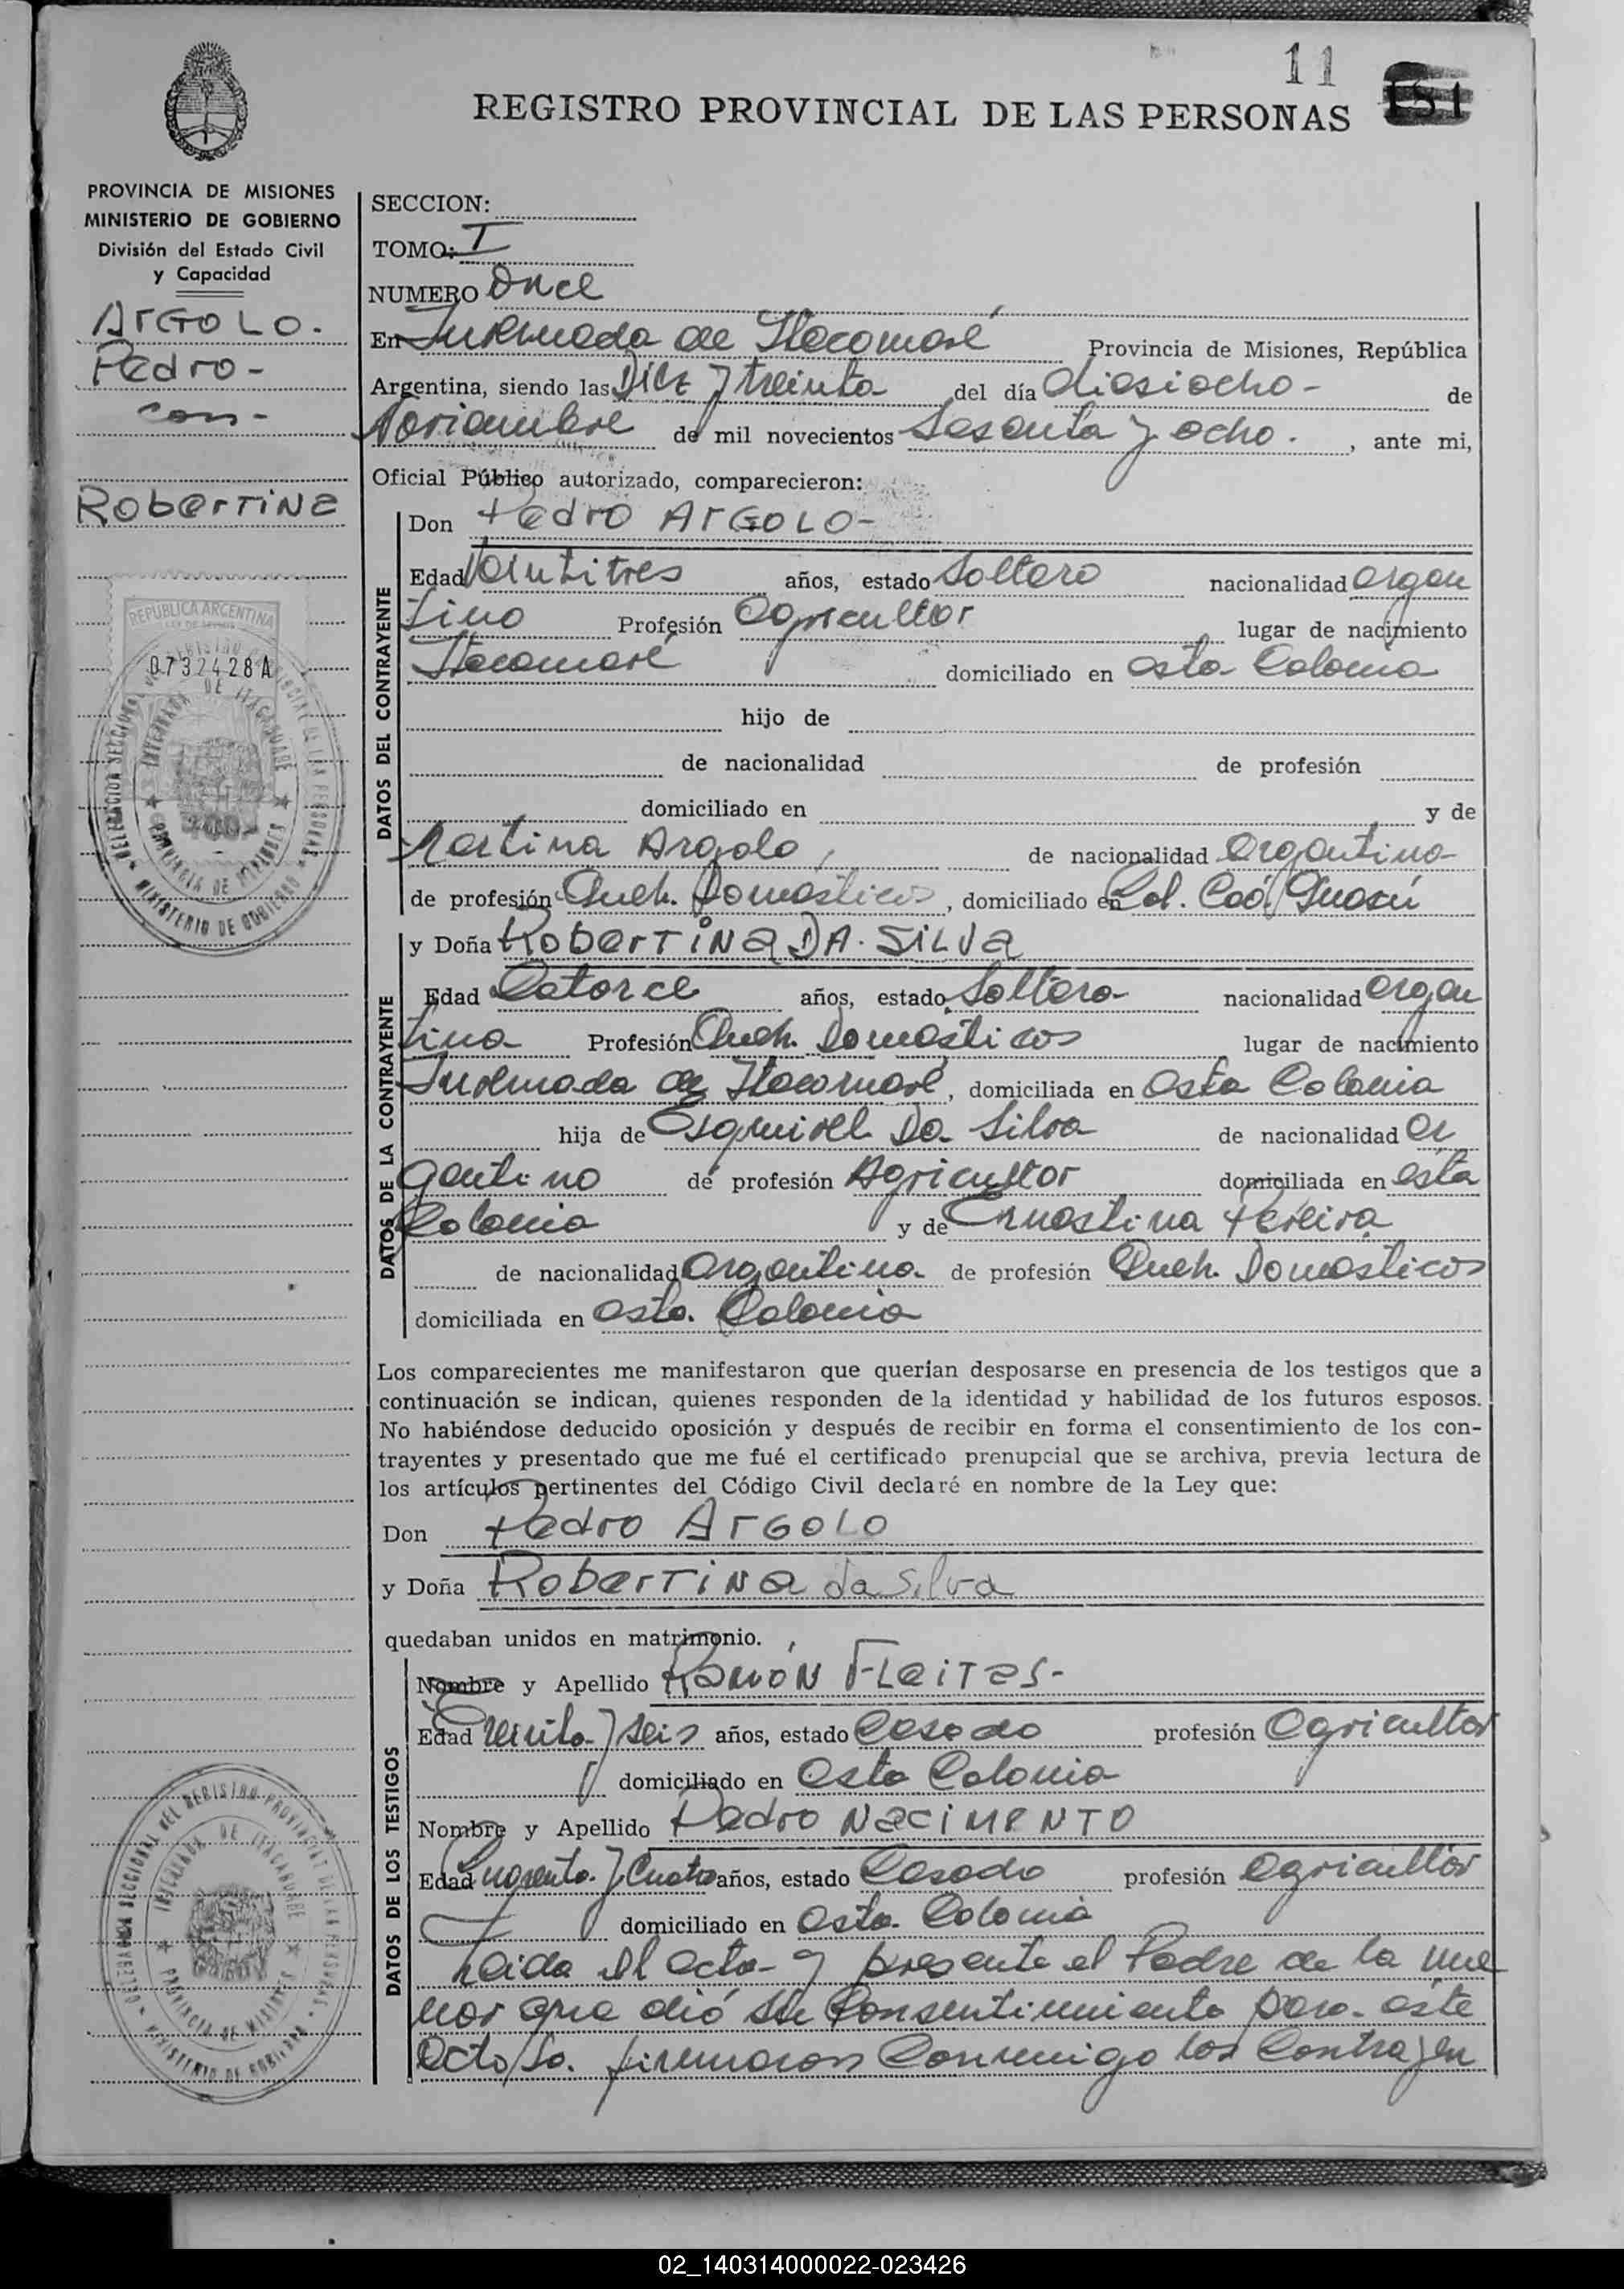 11
151
REGISTRO PROVINCIAL DE LAS PERSONAS
PROVINCIA DE MISIONES
MINISTERIO DE GOBIERNO
División del Estado Civil
y Capacidad
ArGOLO.
Pedro -
con -
RoberTiNa
REPUBLICA ARGENTINA
0732428A
SECCION:
TOMO: I
NUMERO Once
En Invernada de Itacaruaré Provincia de Misiones, República
Argentina, siendo las Diez y treinta del día diesiocho - de
Noviembre de mil novecientos Sesenta y ocho. , ante mi,
Oficial Público autorizado, comparecieron:
DATOS DEL CONTRAYENTE
Don Pedro ArGOLO -
Edad Veintitres años, estado Soltero nacionalidad argen
tino Profesión agricultor lugar de nacimiento
Itacaruaré domiciliado en esta Colonia
hijo de
de nacionalidad de profesión
domiciliado en y de
Martina Argolo, de nacionalidad Argentina
de profesión Queh. Domésticos, domiciliado en Col. Caá Guasú
DATOS DE LA CONTRAYENTE
y Doña RoberTiNa DA. SiLVa
Edad Catorce años, estado Soltera - nacionalidad argen
tina Profesión Queh. Domésticos lugar de nacimiento
Invernada de Itacaruaré, domiciliada en esta Colonia
hija de Esquivel Da Silva de nacionalidad ar
gentino de profesión Agricultor domiciliada en esta
Colonia y de Ernestina Pereira
de nacionalidad argentina de profesión Queh. Domésticos
domiciliada en esta Colonia
Los comparecientes me manifestaron que querían desposarse en presencia de los testigos que a
continuación se indican, quienes responden de la identidad y habilidad de los futuros esposos.
No habiéndose deducido oposición y después de recibir en forma el consentimiento de los con-
trayentes y presentado que me fué el certificado prenupcial que se archiva, previa lectura de
los artículos pertinentes del Código Civil declaré en nombre de la Ley que:
Don Pedro ArGOLO
y Doña RoberTiNa da Silva
quedaban unidos en matrimonio.
DATOS DE LOS TESTIGOS
Nombre y Apellido RamóN FLeiTas -
Edad Treinta y seis años, estado Casado profesión Agricultor
domiciliado en esta Colonia
Nombre y Apellido Pedro NaciMeNTO
Edad Cuarenta y Cuatro años, estado Casado profesión agricultor
domiciliado en esta Colonia
Leida el acta y presente el Padre de la me
nor que dió su Consentimiento para este
Acto, la firmaron Conmigo los Contrayen
02_140314000022-023426